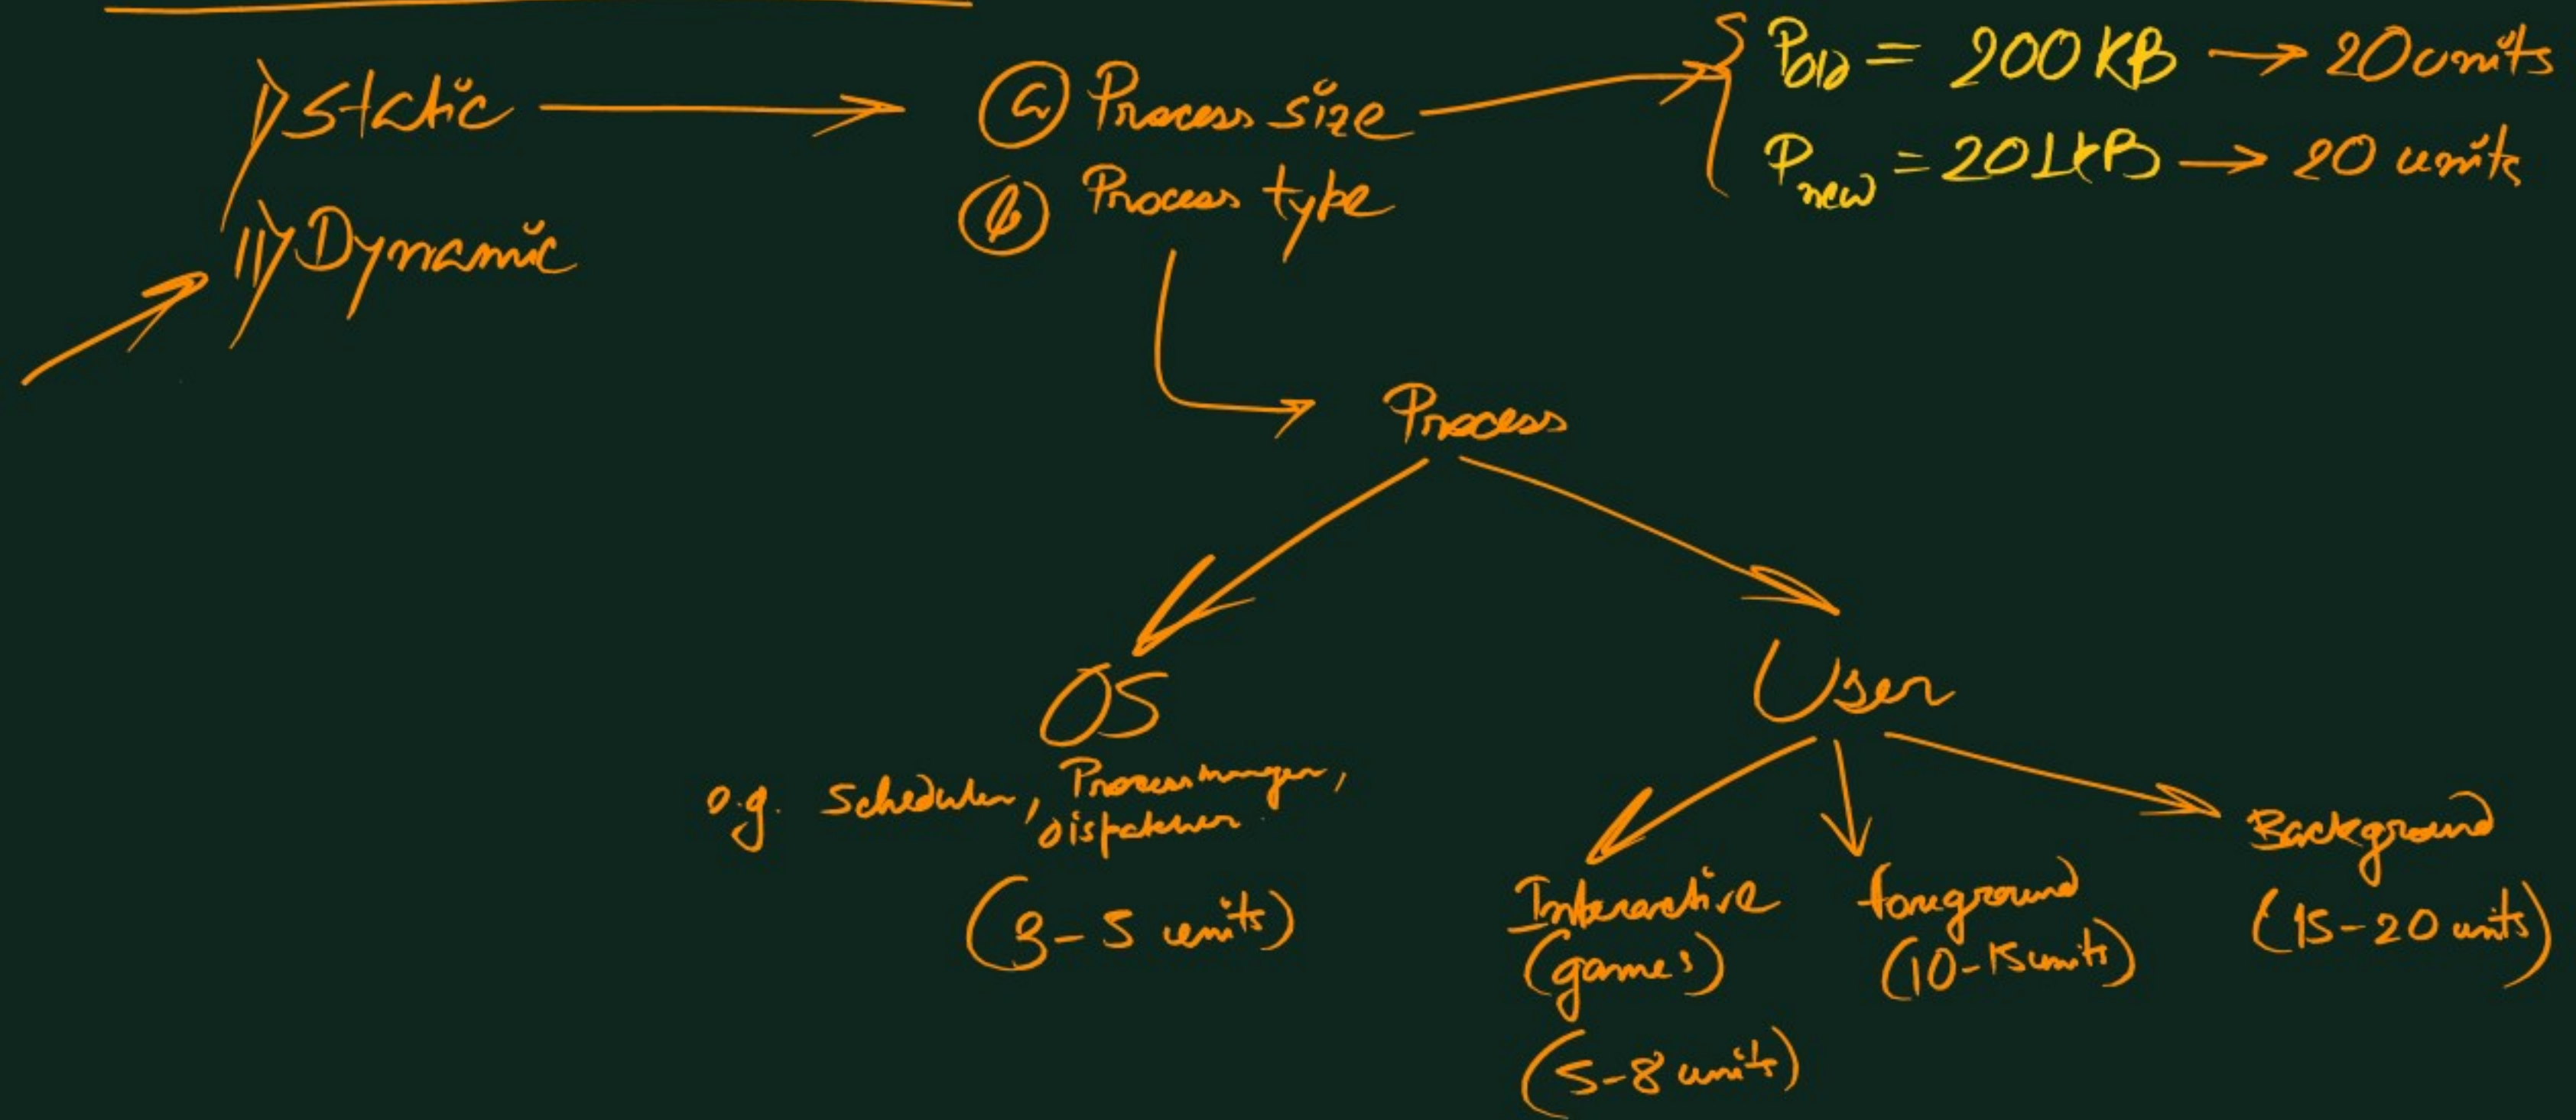 I) Static → (a) Process size → { P_old = 200 KB → 20 units
P_new = 201 KB → 20 units
(b) Process type
II) Dynamic
Process
OS
User
e.g. Scheduler, Process manager,
Dispatcher
(3-5 units)
Interactive
(games)
(5-8 units)
foreground
(10-15 units)
Background
(15-20 units)